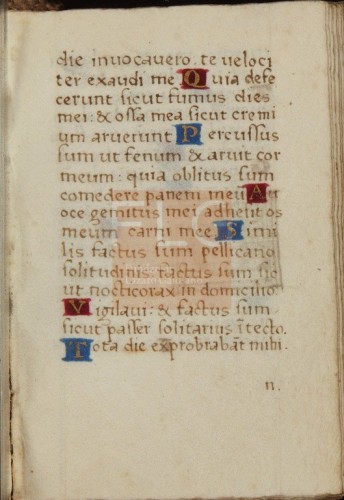 die inuocauero. te ueloci
ter exaudi me Quia defe
cerunt sicut fumus dies
mei: & ossa mea sicut cremi
um aruerunt Percussus
sum ut fenum & aruit cor
meum: quia oblitus sum
comedere panem meũ A u
oce gemitus mei adhesit os
meum carni mee Simi
lis factus sum pellicano
solitudinis factus sum sic
ut nocticorax in domicilio
Vigilaui: & factus sum
sicut passer solitarius ĩ tecto.
Tota die exprobrabãt mihi.
n.